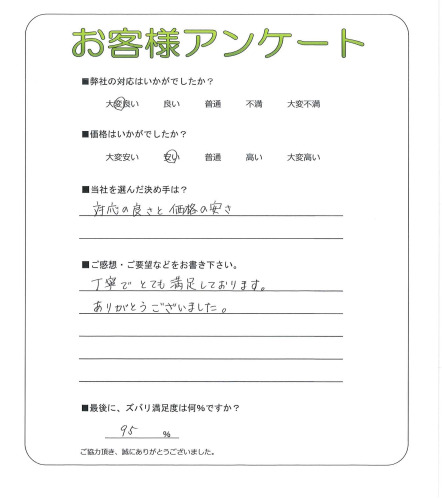 お客様アンケート
■弊社の対応はいかがでしたか？
大変良い 良い 普通 不満 大変不満
■価格はいかがでしたか？
大変安い 安い 普通 高い 大変高い
■当社を選んだ決め手は？
対応の良さと価格の安さ
■ご感想・ご要望などをお書き下さい。
丁寧でとても満足しております。
ありがとうございました。
■最後に、ズバリ満足度は何％ですか？
95 ％
ご協力頂き、誠にありがとうございました。